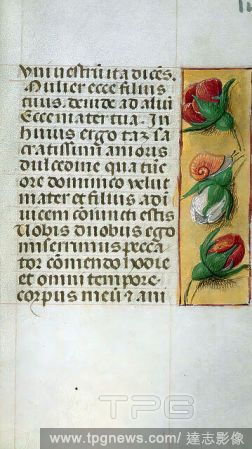 vnū vestrū ita dicēs.
Mulier ecce filius
tuus. deinde ad aliū
Ecce mater tua. In
huius ergo tā sa
cratissimi amoris
dulcedine qua tūc
ore dominico velut
mater et filius ad i
uicem coniūcti estis
Uobis duobus ego
miserrimus pecca
tor cōmendo hodie
et omni tempore
corpus meū ⁊ ani
TPG
www.tpgnews.com / 達志影像